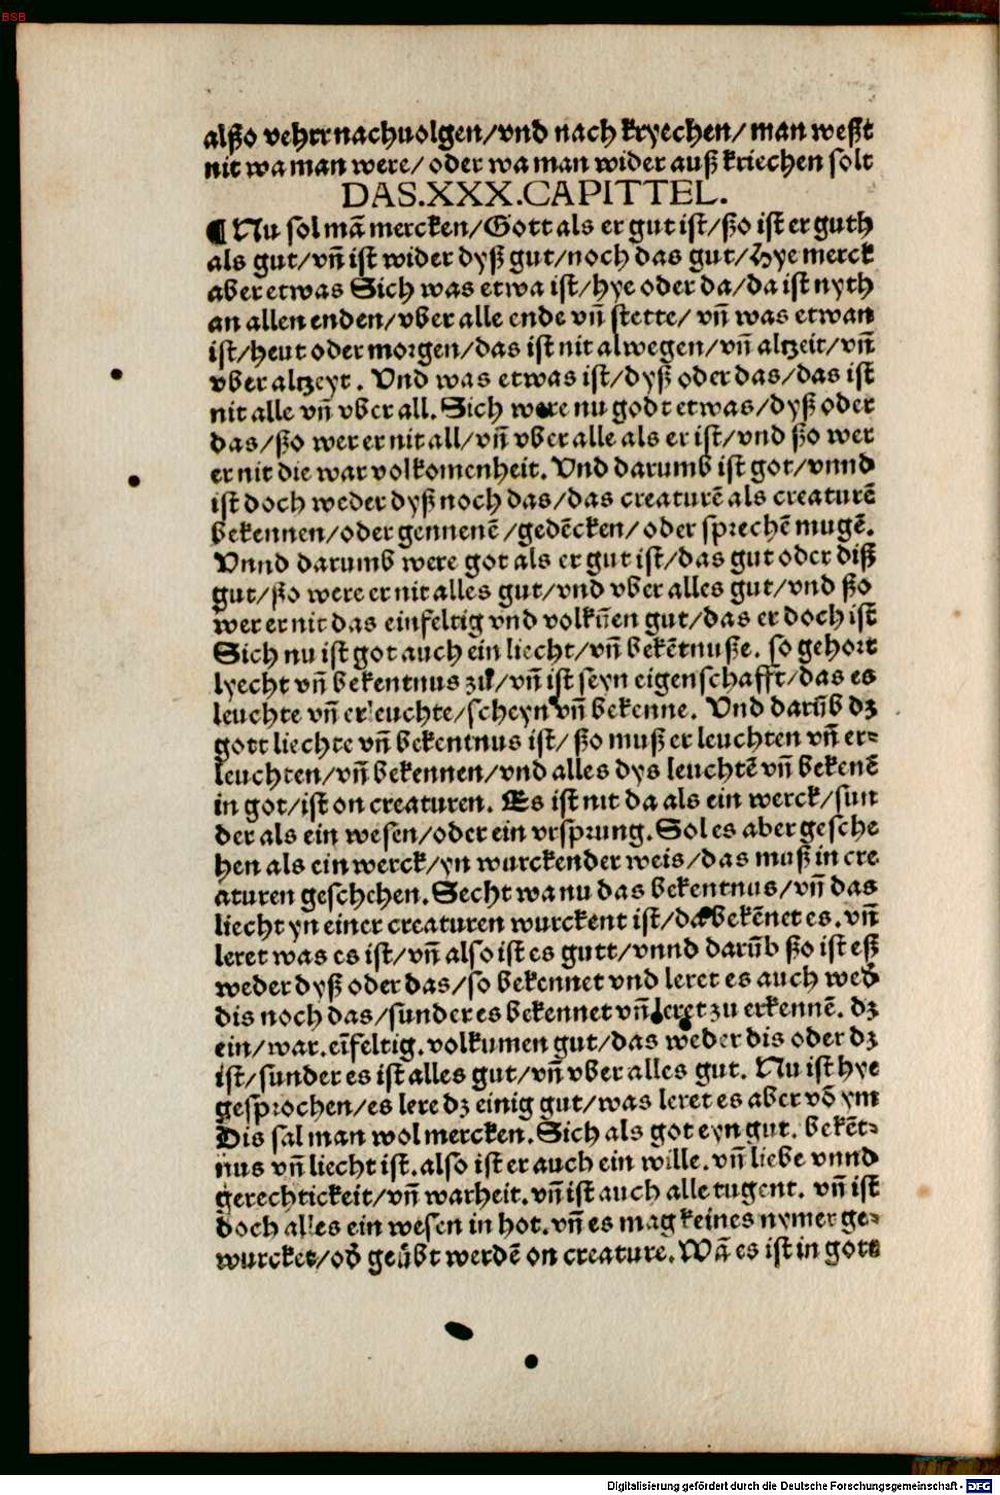 BSB
alßo vehrr nachuolgen/vnd nach kryechen/ man weßt
nit wa man were/ oder wa man wider auß kriechen solt
DAS.XXX.CAPITTEL.
¶ Nu sol mã mercken/Gott als er gut ist/ßo ist er guth
als gut/vñ ist wider dyß gut/noch das gut/Hye merck
aber etwas Sich was etwa ist/hye oder da/da ist nyth
an allen enden/vber alle ende vñ stette/ vñ was etwan
ist/heut oder morgen/das ist nit alwegen/vñ altzeit/vñ
vber altzeyt. Vnd was etwas ist/dyß oder das/das ist
nit alle vñ vber all. Sich were nu godt etwas/dyß oder
das/ßo wer er nit all/vñ vber alle als er ist/vnd ßo wer
er nit die war volkomenheit. Vnd darumb ist got/vnnd
ist doch weder dyß noch das/das creaturẽ als creaturẽ
bekennen/oder gennenẽ/gedẽcken/oder sprechẽ mugẽ.
Vnnd darumb were got als er gut ist/das gut oder diß
gut/ßo were er nit alles gut/vnd vber alles gut/vnd ßo
wer er nit das einfeltig vnd volkũen gut/das er doch ist
Sich nu ist got auch ein liecht/vñ bekẽtnuße. so gehort
lyecht vñ bekentnus zu/vñ ist seyn eigenschafft/das es
leuchte vñ erleuchte/scheyn vñ bekenne. Vnd darũb dz
gott liechte vñ bekentnus ist/ ßo muß er leuchten vñ er-
leuchten/vñ bekennen/vnd alles dys leuchtẽ vñ bekenẽ
in got/ist on creaturen. Es ist nit da als ein werck/sun
der als ein wesen/oder ein vrsprung. Sol es aber gesche
hen als ein werck/yn wurckender weis/das muß in cre
aturen geschehen. Secht wa nu das bekentnus/vñ das
liecht yn einer creaturen wurckent ist/da bekẽnet es. vñ
leret was es ist/vñ also ist es gutt/vnnd darũb ßo ist eß
weder dyß oder das/so bekennet vnd leret es auch wed̃
dis noch das/sunder es bekennet vñ leret zu erkennẽ. dz
ein/war. eĩfeltig. volkumen gut/das weder dis oder dz
ist/sunder es ist alles gut/vñ vber alles gut. Nu ist hye
gesprochen/es lere dz einig gut/was leret es aber võ ym
Dis sal man wol mercken. Sich als got eyn gut. bekẽt-
nus vñ liecht ist. also ist er auch ein wille. vñ liebe vnnd
gerechtickeit/vñ warheit. vñ ist auch alle tugent. vñ ist
doch alles ein wesen in hot. vñ es mag keines nymer ge-
wurcket/od̃ geũbt werdẽ on creature. Wã es ist in gott
Digitalisierung gefördert durch die Deutsche Forschungsgemeinschaft - DFG